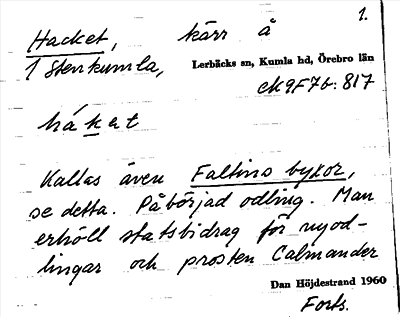 Hacket, kärr å 1.
1 Stenkumla, Lerbäcks sn, Kumla hd, Örebro län
ek 9F7b: 817
håket
Kallas även Faltins byxor,
se detta. Påbörjad odling. Man
erhöll statsbidrag för nyod-
lingar och prosten Calmander
Dan Höjdestrand 1960
Forts.